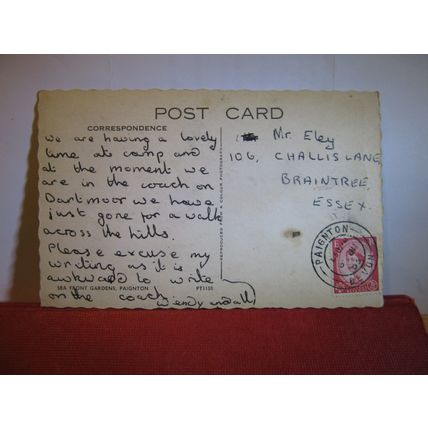 POST CARD
CORRESPONDENCE
We are having a lovely
time at camp and
at the moment we
are in the coach on
Dartmoor we have
just gone for a walk
across the hills.
Please excuse my
writing as it is
awkward to write
on the coach
Wendy and all
SEA FRONT GARDENS, PAIGNTON PT1155
REPRODUCED FROM A COLOUR PHOTOGRAPH
Mr. Eley
106, CHALLIS LANE
BRAINTREE
ESSEX.
PAIGNTON
DEVON